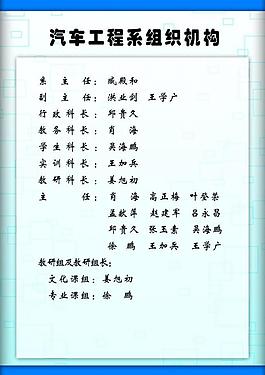 汽车工程系组织机构
系主任：戚殿和
副主任：洪业剑 王学广
行政科长：邱贵久
教务科长：肖海
学生科长：吴海鹏
实训科长：王加兵
教研科长：姜旭初
主任：肖海 高正梅 叶登荣
孟献萍 赵建军 吕永昌
邱贵久 张玉素 吴海鹏
徐鹏 王加兵 王学广
教研组及教研组长：
文化课组：姜旭初
专业课组：徐鹏